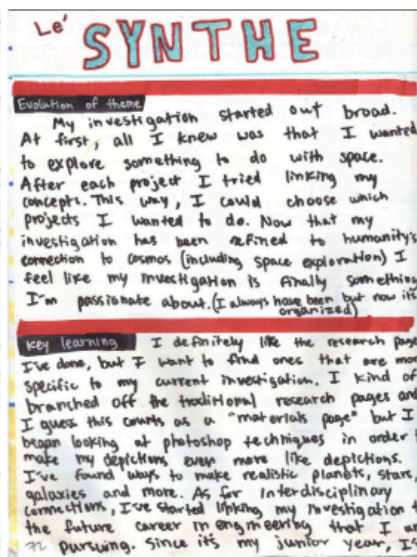 Le'
SYNTHE
Evolution of theme
My investigation started out broad.
At first, all I knew was that I wanted
to explore something to do with space.
After each project I tried linking my
concepts. This way, I could choose which
projects I wanted to do. Now that my
investigation has been refined to humanity's
connection to cosmos (including space exploration) I
feel like my investigation is finally something
I'm passionate about. (I always have been but now it's
organized)
Key learning I definitely like the research page
I've done, but I want to find ones that are mor
specific to my current investigation. I kind of
branched off the traditional research pages and
I guess this counts as a "materials page" but I
began looking at photoshop techniques in order
make my depictions even more like depictions.
I've found ways to make realistic planets, stars,
galaxies and more. As for interdisciplinary
connections, I've started linking my investigation t
the future career in engineering that I a
72 pursuing. Since it's my junior year, I's